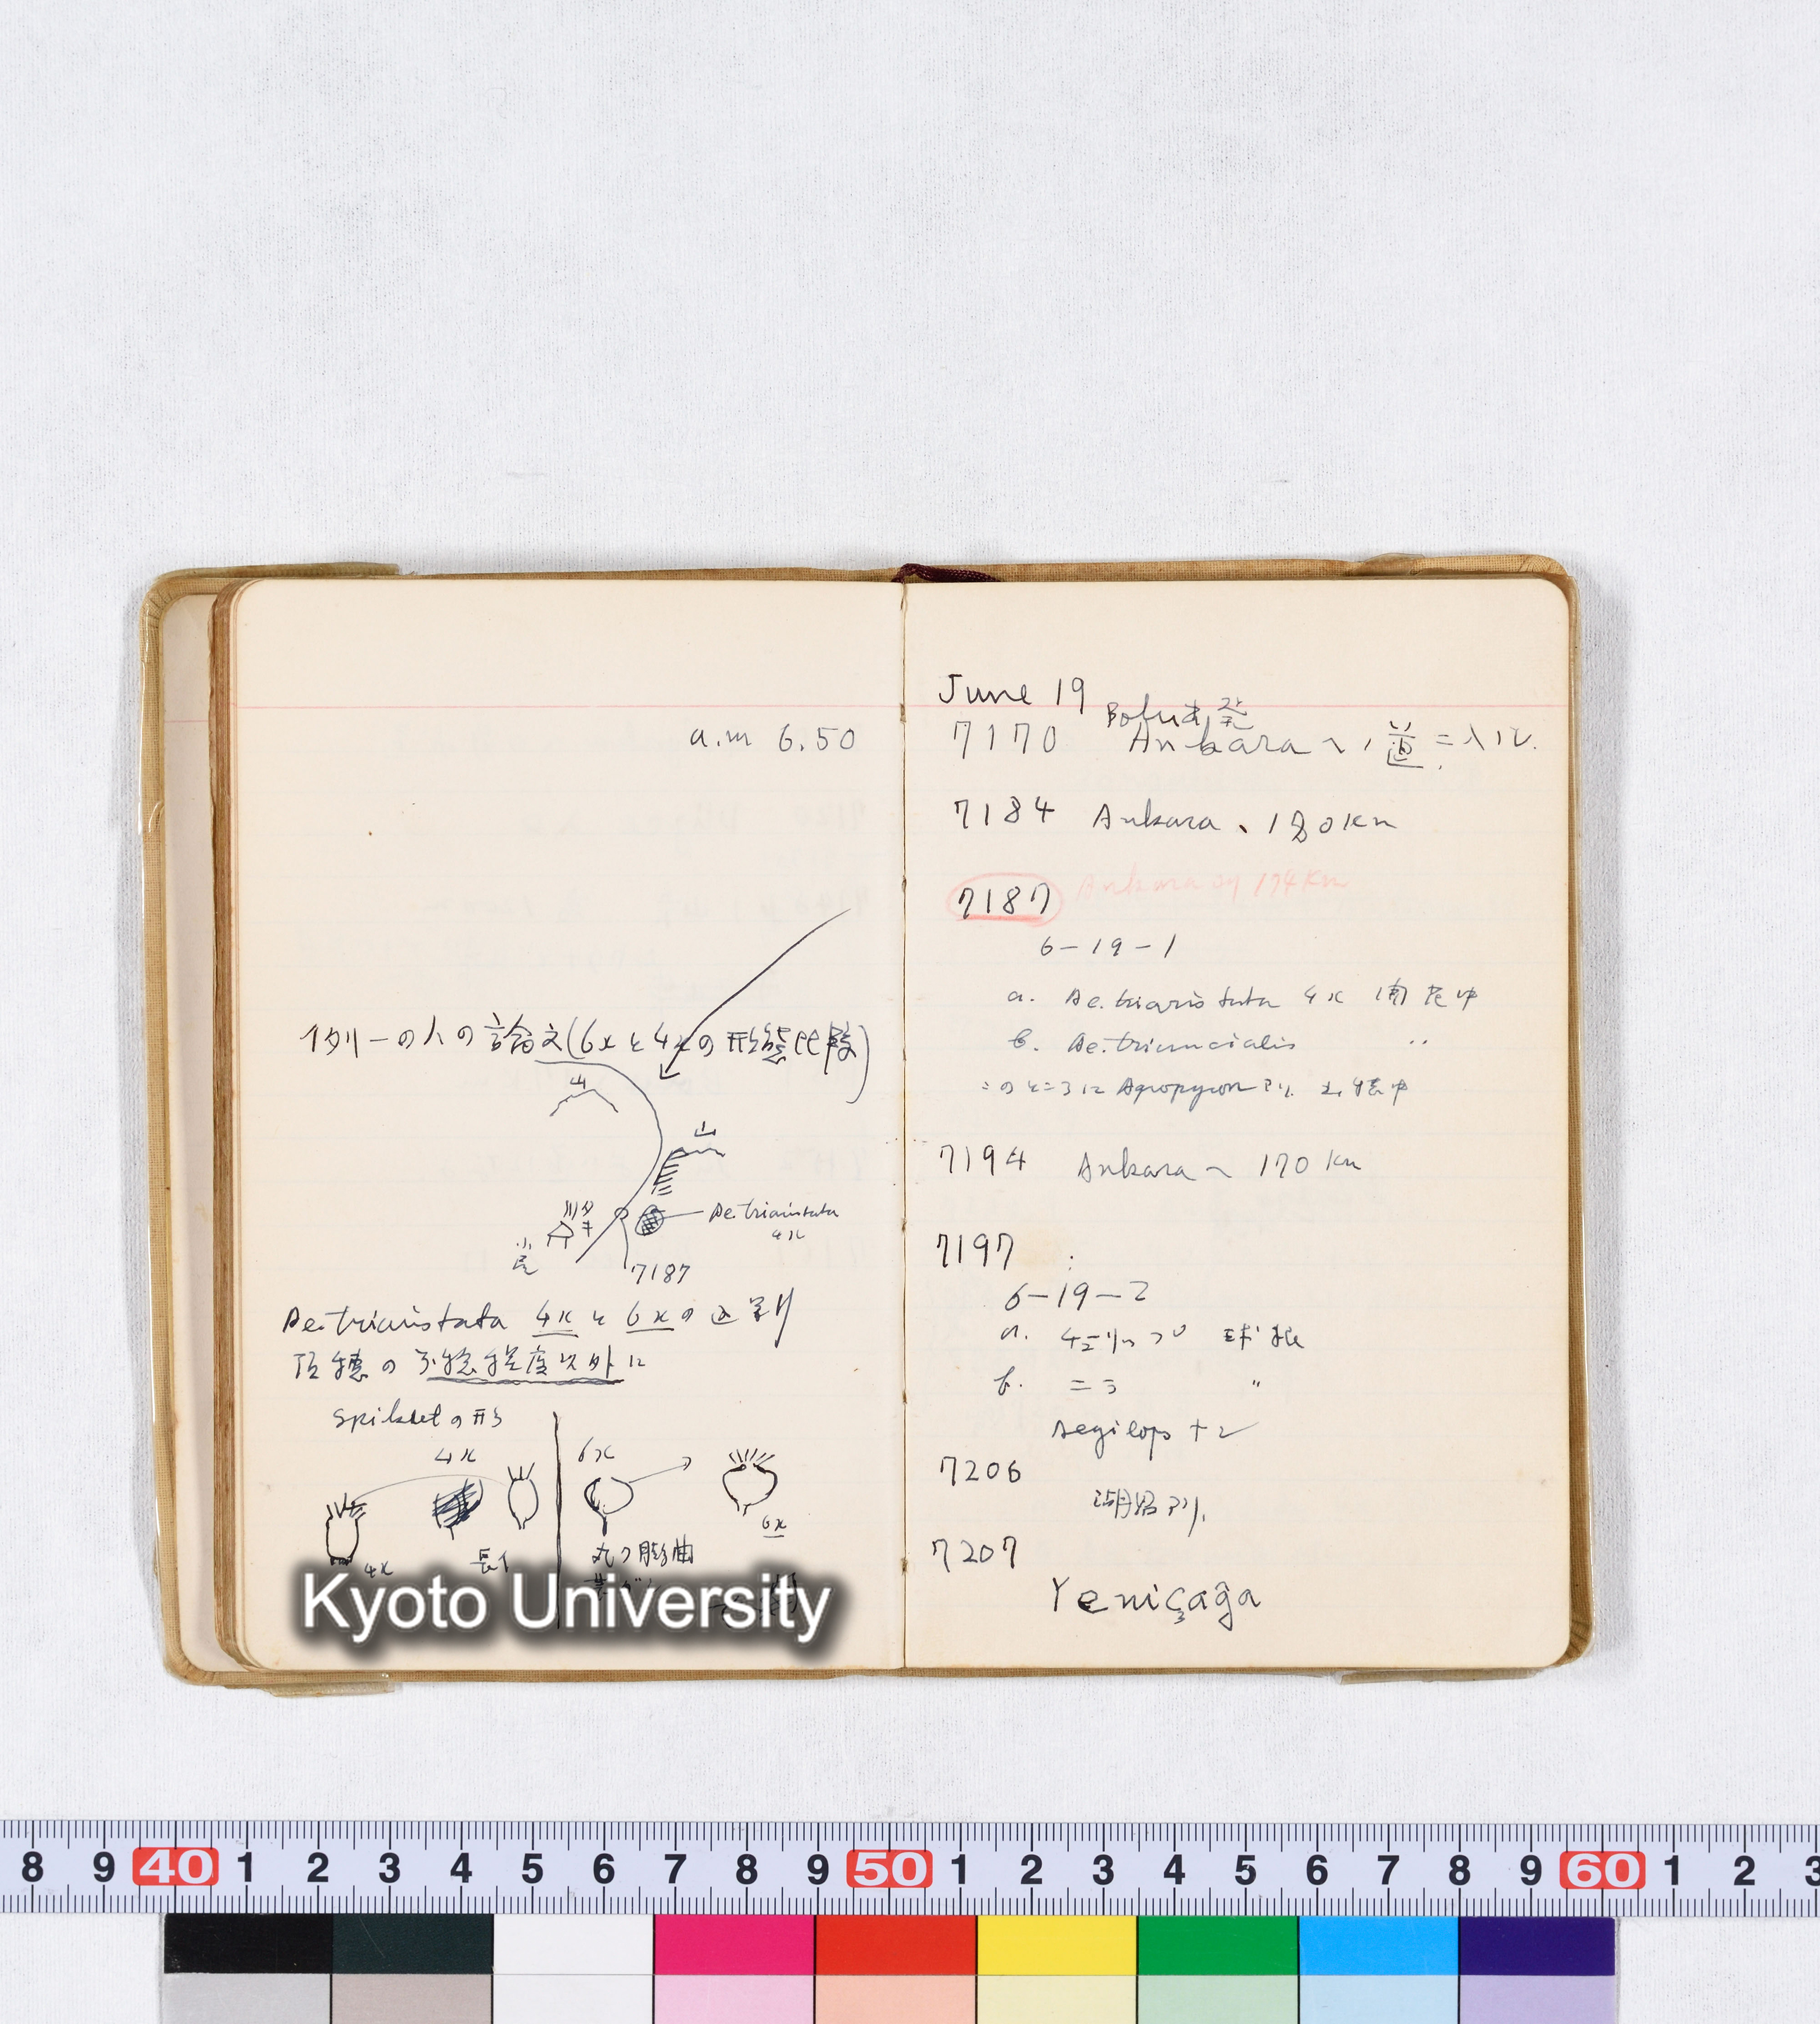 a.m 6.50
イタリーの人の論文(6xと4xの形態比較)
山
山
Ae. triaristata
4x
7187
Ae. triaristata 4xと6xの区別
頂穂の不稔程度以外に
spikeletの形
4x
6x
4x
長イ
6x
丸ク膨曲
Kyoto University
June 19
Bolu発
7170 Ankaraヘノ道ニ入ル.
7184 Ankara、180km
7187 Ankara 174km
6-19-1
a. Ae. triaristata 4x 開花中
b. Ae. triuncialis 〃
このところに Agropyron アリ 出穂中
7194 Ankaraヘ 170km
7197
6-19-2
a.
b. 二 〃
Aegilops ナシ
7206
湖アリ.
7207
Yeniçağa
8 9 40 1 2 3 4 5 6 7 8 9 50 1 2 3 4 5 6 7 8 9 60 1 2 3